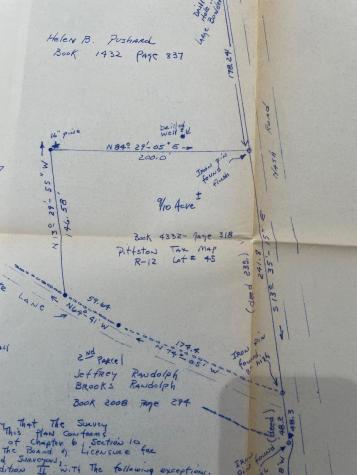 Helen B. Pushard
Book 1432 Page 837
Drill
Hole
Large Boulder
178.24'
16" pine
drilled
well
N 84° 29'- 05" E
200.0'
Iron pin
found
flush
Nash Road
N 13° 29'- 55" W
146.58'
9/10 Acre ±
Book 4332- Page 318
Pittston Tax Map
R-12 Lot # 45
(deed 239.)
241.8
S 13° 35'- 15" E
LANE
59.64
N 64° 41' W
174.4
N 74° 05'
2nd Parcel
Jeffrey Randolph
Brooks Randolph
Book 2008 Page 294
Iron pin
found
(deed)
48.2
48.3
Iron
found
That The Survey
This Plan Conforms
of Chapter 6 Section 10
The Board of Licensure for
Surveyors,
dition II, with The following exception.